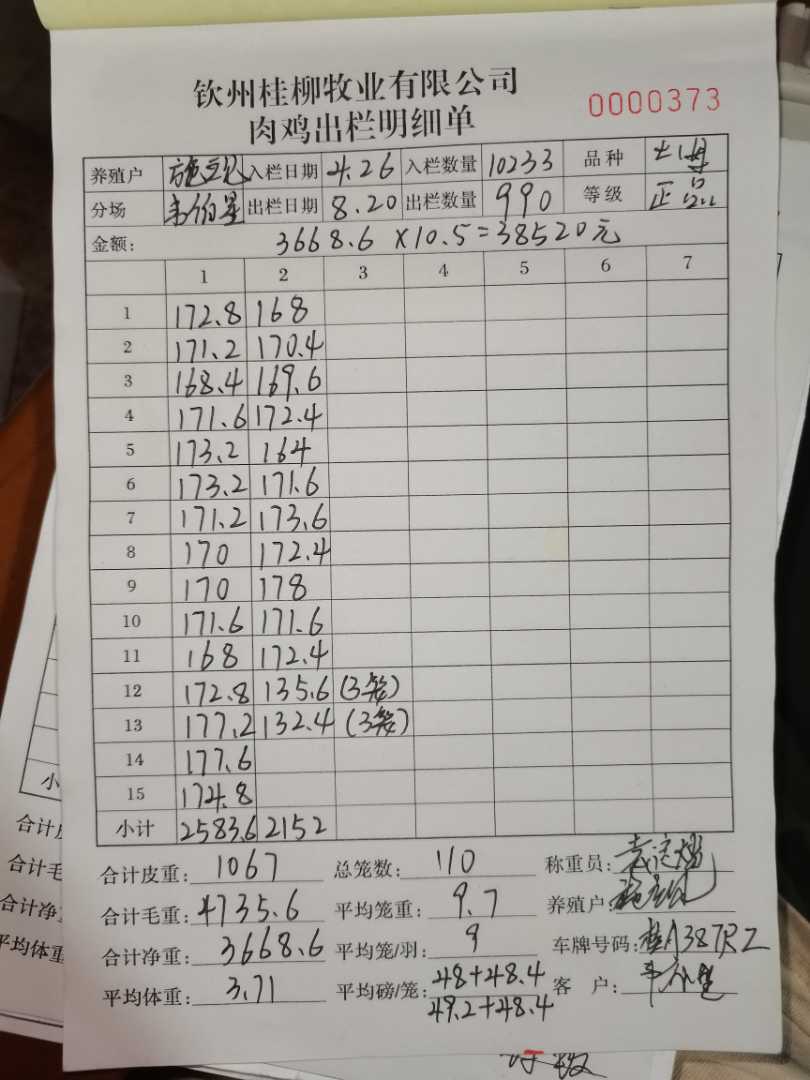 钦州桂柳牧业有限公司
0000373
肉鸡出栏明细单
养殖户 入栏日期 4.26 入栏数量 10233 品种 土
分场 韦伯星 出栏日期 8.20 出栏数量 990 等级 正品
金额: 3668.6 X10.5=38520元
1 2 3 4 5 6 7
1 172.8 168
2 171.2 170.4
3 168.4 169.6
4 171.6 172.4
5 173.2 164
6 173.2 171.6
7 171.2 173.6
8 170 172.4
9 170 178
10 171.6 171.6
11 168 172.4
12 172.8 135.6 (3笼)
13 177.2 132.4 (3笼)
14 177.6
15 174.8
小计 2583.6 2152
合计皮重: 1067 总笼数: 110 称重员:
合计毛重: 4735.6 平均笼重: 9.7 养殖户:
合计净重: 3668.6 平均笼/羽: 9 车牌号码:
平均体重: 3.71 平均磅/笼: 48+48.4 客 户:
49.2+48.4
小
合计皮
合计毛
合计净重
平均体重